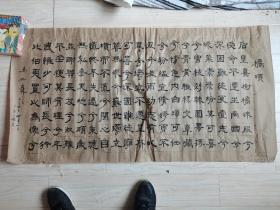 橘頌
后皇嘉樹橘徠服兮
受命不遷生南國兮
深固難徙更壹志兮
綠葉素榮紛其可喜
兮曾枝剡棘圓果摶
兮青黃雜糅文章爛
兮精色內白類任道
兮紛縕宜修姱而不
醜兮嗟爾幼志有以
異兮獨立不遷豈不
可喜兮深固難徙廓
其無求兮蘇世獨立
橫而不流兮閉心自
慎終不失過兮秉德
無私參天地兮願歲
並謝與長友兮淑離
不淫梗其有理兮年
歲雖少可師長兮行
比伯夷置以為像兮